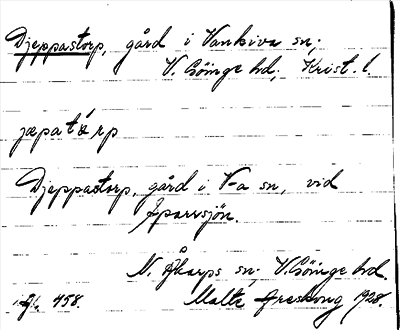 Djeppastorp, gård i Vankiva sn;
V. Göinge hd, Krist. l.
jæpatårp
Djeppastorp, gård i V-a sn, vid
Sparrsjön.
N. Åkarps sn; V. Göinge hd.
458. Malte Areskoug 1928.